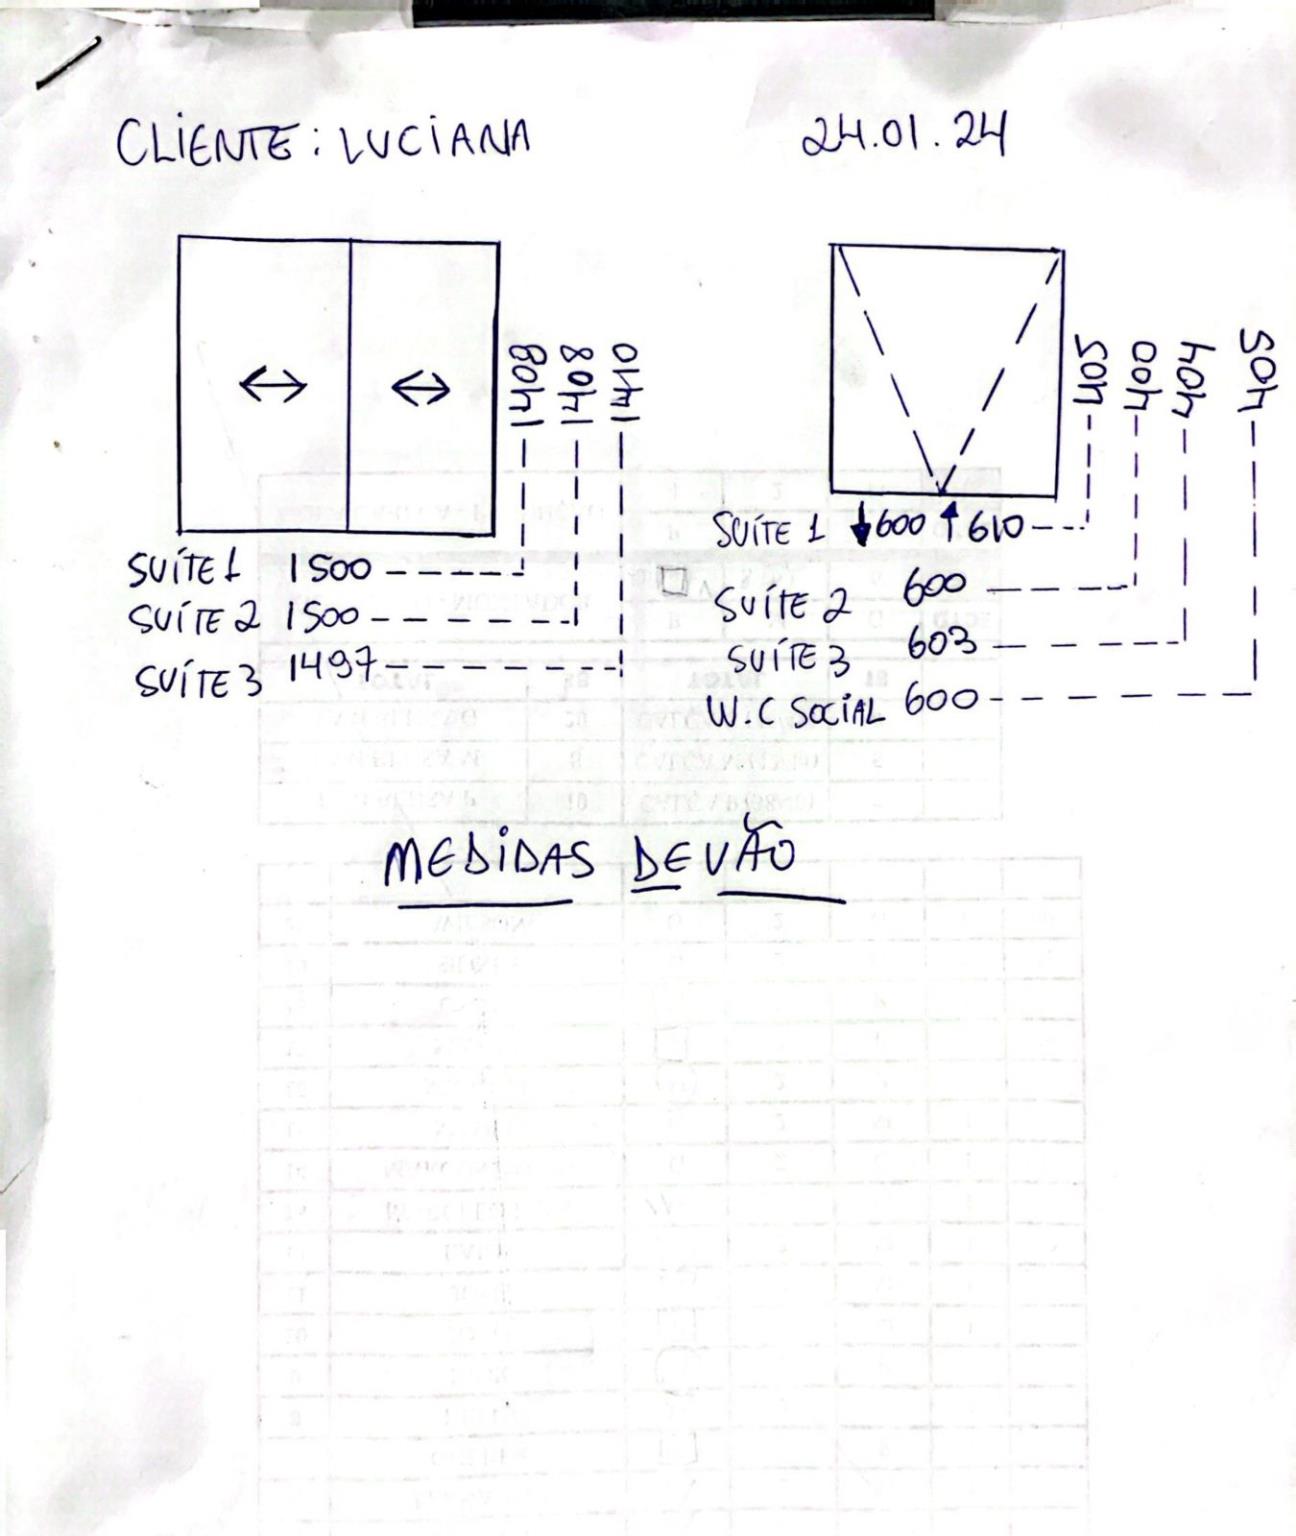 CLIENTE: LUCIANA
24.01.24
1408
1408
1410
SUÍTE 1 1500
SUÍTE 2 1500
SUÍTE 3 1497
405
400
404
405
SUÍTE 1 ↓600 ↑610
SUÍTE 2 600
SUÍTE 3 603
W.C SOCIAL 600
MEDIDAS DE VÃO